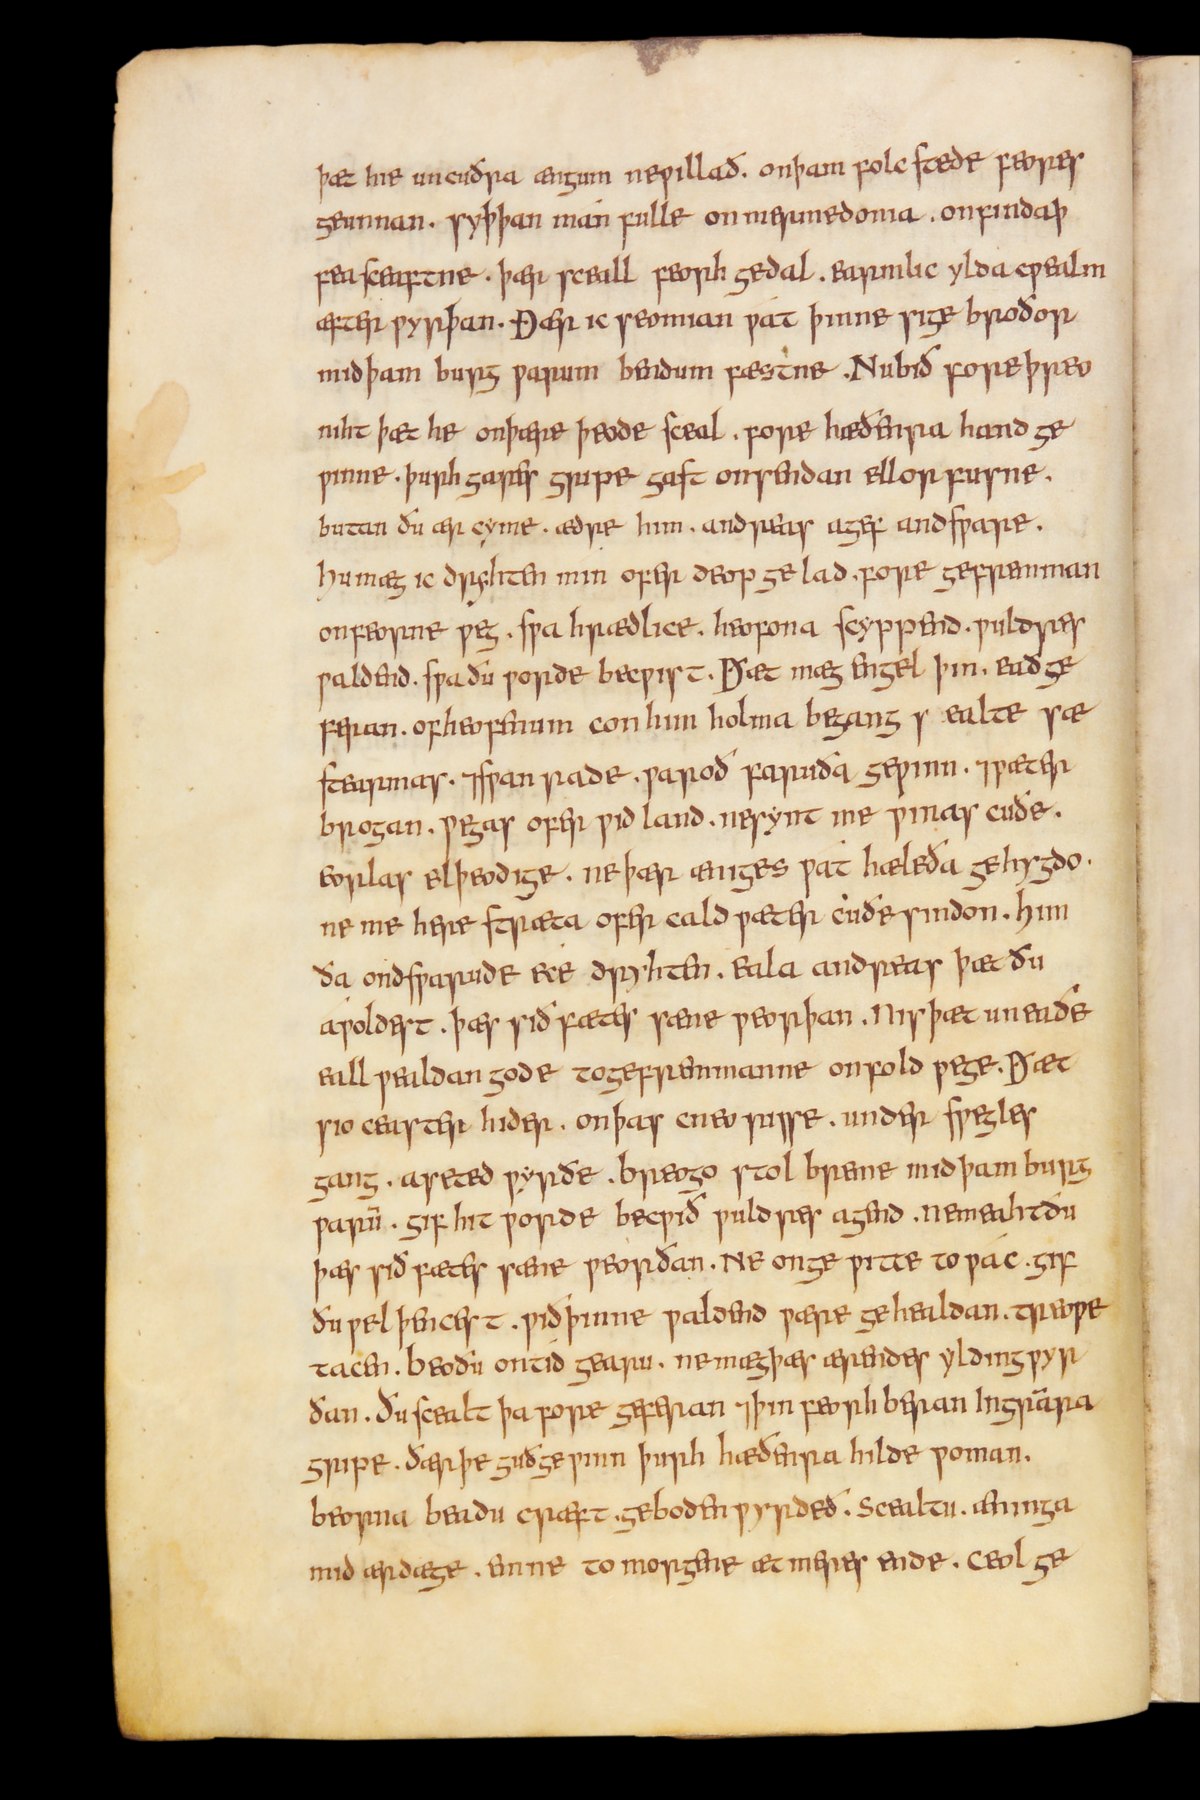 þæt hie uncuðra ængum ne ƿillað . onþam folc stede feores
geunnan . syþþan mán fulle on mermedonia . onfindaþ
feasceaftne . þær sceall feorh gedal . earmlic ylda cƿealm
æfter ƿyrþan . Ðær ic seomian ƿát þinne sige broðor
mid þam burg ƿarum bendum fæstne . Nu bið fore þreo
niht þæt he on þære þeode sceal . fore hæðenra hand ge
ƿinne . þurh gares gripe gast onsendan ellor fusne .
butan ðu ær cyme . ædre him . andreas agef andsƿare .
Hu mæg ic dryhten min ofer deop ge lad . fore gefremman
on feorne ƿeg . sƿa hrædlice . heofona scyppend . ƿuldres
ƿaldend . sƿa ðu ƿorde becƿist . Ðæt mæg engel þin . eað ge
feran . of heofenum con him holma begang s ealte sæ
stearmas . ⁊ sƿan rade . ƿaroð faruða geƿinn . ⁊ ƿæter
brogan . ƿegas ofer ƿid land . ne synt me ƿinas cuðe .
eorlas elþeodige . ne þær æniges ƿát hæleða gehygdo .
ne me here stræta ofer cald ƿæter cuðe sindon . Him
ða ondsƿarude ece dryhten . eala andreas þæt ðu
á ƿoldest . þæs sið fætes sæne ƿeorþan . Nis þæt uneaðe
eall ƿealdan gode to gefremmanne on fold ƿege . Ðæt
sio ceaster hider . on þas cneo risse . under sƿegles
gang . aseted ƿyrðe . breogo stol breme mid þam burg
ƿarū . gif hit ƿorde becƿið ƿuldres agend . ne meaht ðu
þæs sið fætes sæne ƿeorðan . Ne on ge ƿitte to ƿác . gif
ðu ƿel þencest . ƿið þinne ƿaldend ƿære gehealdan . treoƿe
tacen . beo ðu on tid gearu . ne mæg þæs ærendes ylding ƿyr
ðan . ðu scealt þa fore geferan ⁊ þin feorh beran In gramra
gripe . ðær þe guð geƿinn þurh hæðenra hilde ƿoman .
beorna beadu cræft . geboden ƿyrdeð . Scealtu . æninga
mid ær dæge . enne to morgene æt meres ende . Ceol ge